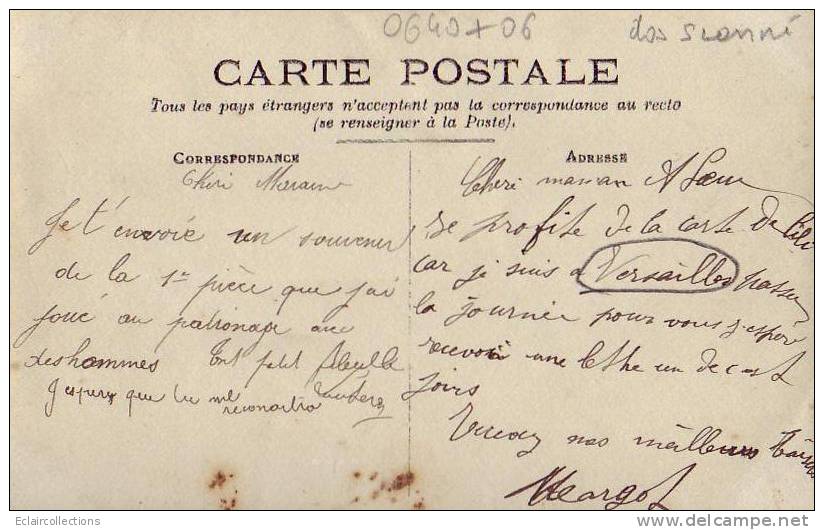 0640+06
dos scanné
CARTE POSTALE
Tous les pays étrangers n'acceptent pas la correspondance au recto
(se renseigner à la Poste).
CORRESPONDANCE
ADRESSE
Cheri
Je t'envoie un souvenir
de la 1re pièce que j'ai
joué au patronage avec
des hommes Ton petit
J'espere que tu me reconaitra
Cheri maman
Je profite de la carte de Lili
car je suis a Versailles passer
la journée pour vous j'espère
recevoir une lettre un de ces
joirs
nos meilleurs
Margot
Eclaircollections
www.delcampe.net